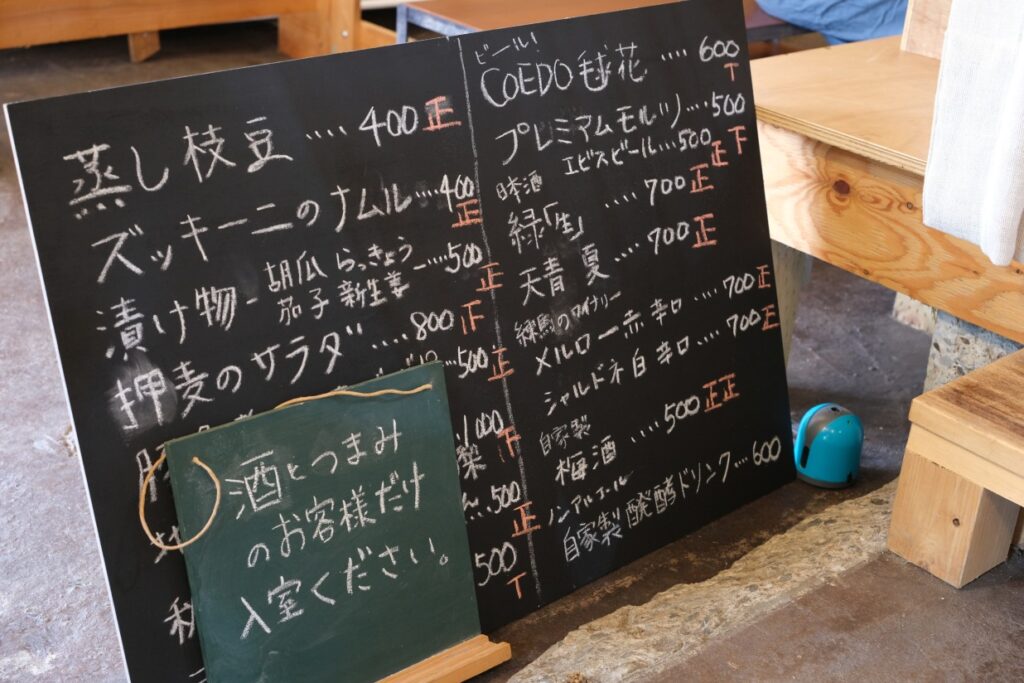 蒸し枝豆‥‥400 正
ズッキーニのナムル‥‥400
正
漬け物 - 胡瓜 らっきょう
茄子 新生姜 ―‥500
正
押麦のサラダ‥‥800 下
500 正
1,000
下
500
正
500
T
ビール!
COEDO毬花‥‥600
T
プレミアムモルツ‥‥500
下
エビスビール‥‥500
正
日本酒
緑「生」‥‥700 正
天青 夏‥‥700 正
練馬のワイナリー
メルロー赤 辛口‥‥700 正
シャルドネ白 辛口‥‥700 正
自家製
梅酒‥‥500 正正
ノンアルコール
自家製 醗酵ドリンク‥‥600
酒とつまみ
のお客様だけ
入室ください。